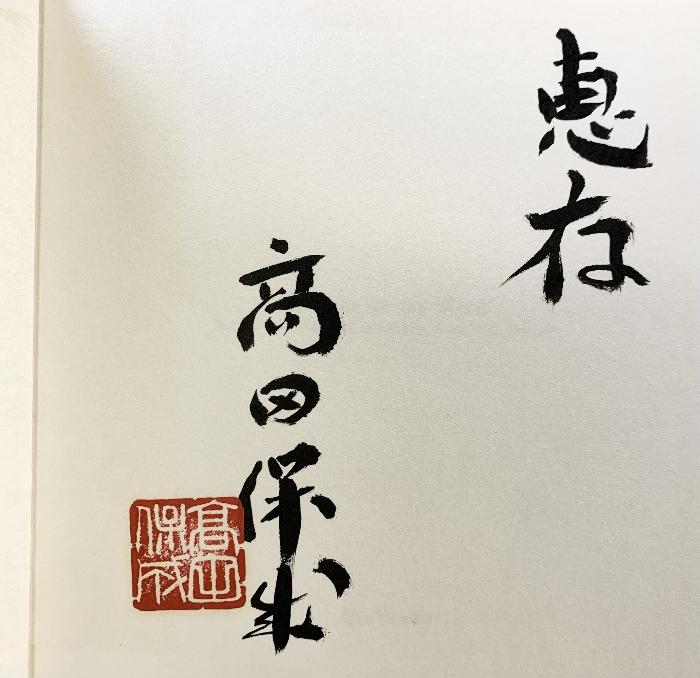 恵存
高田保成
高田
保成